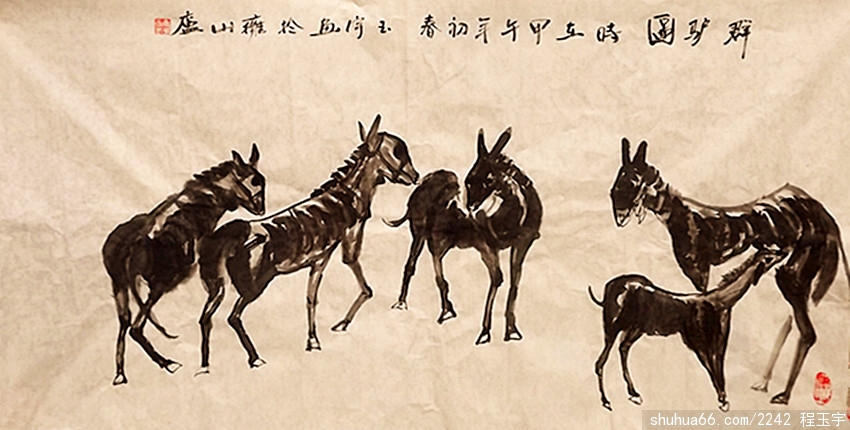 群驴图 時在甲午年初春 玉宇画於雍山庐
shuhua66.com/2242 程玉宇